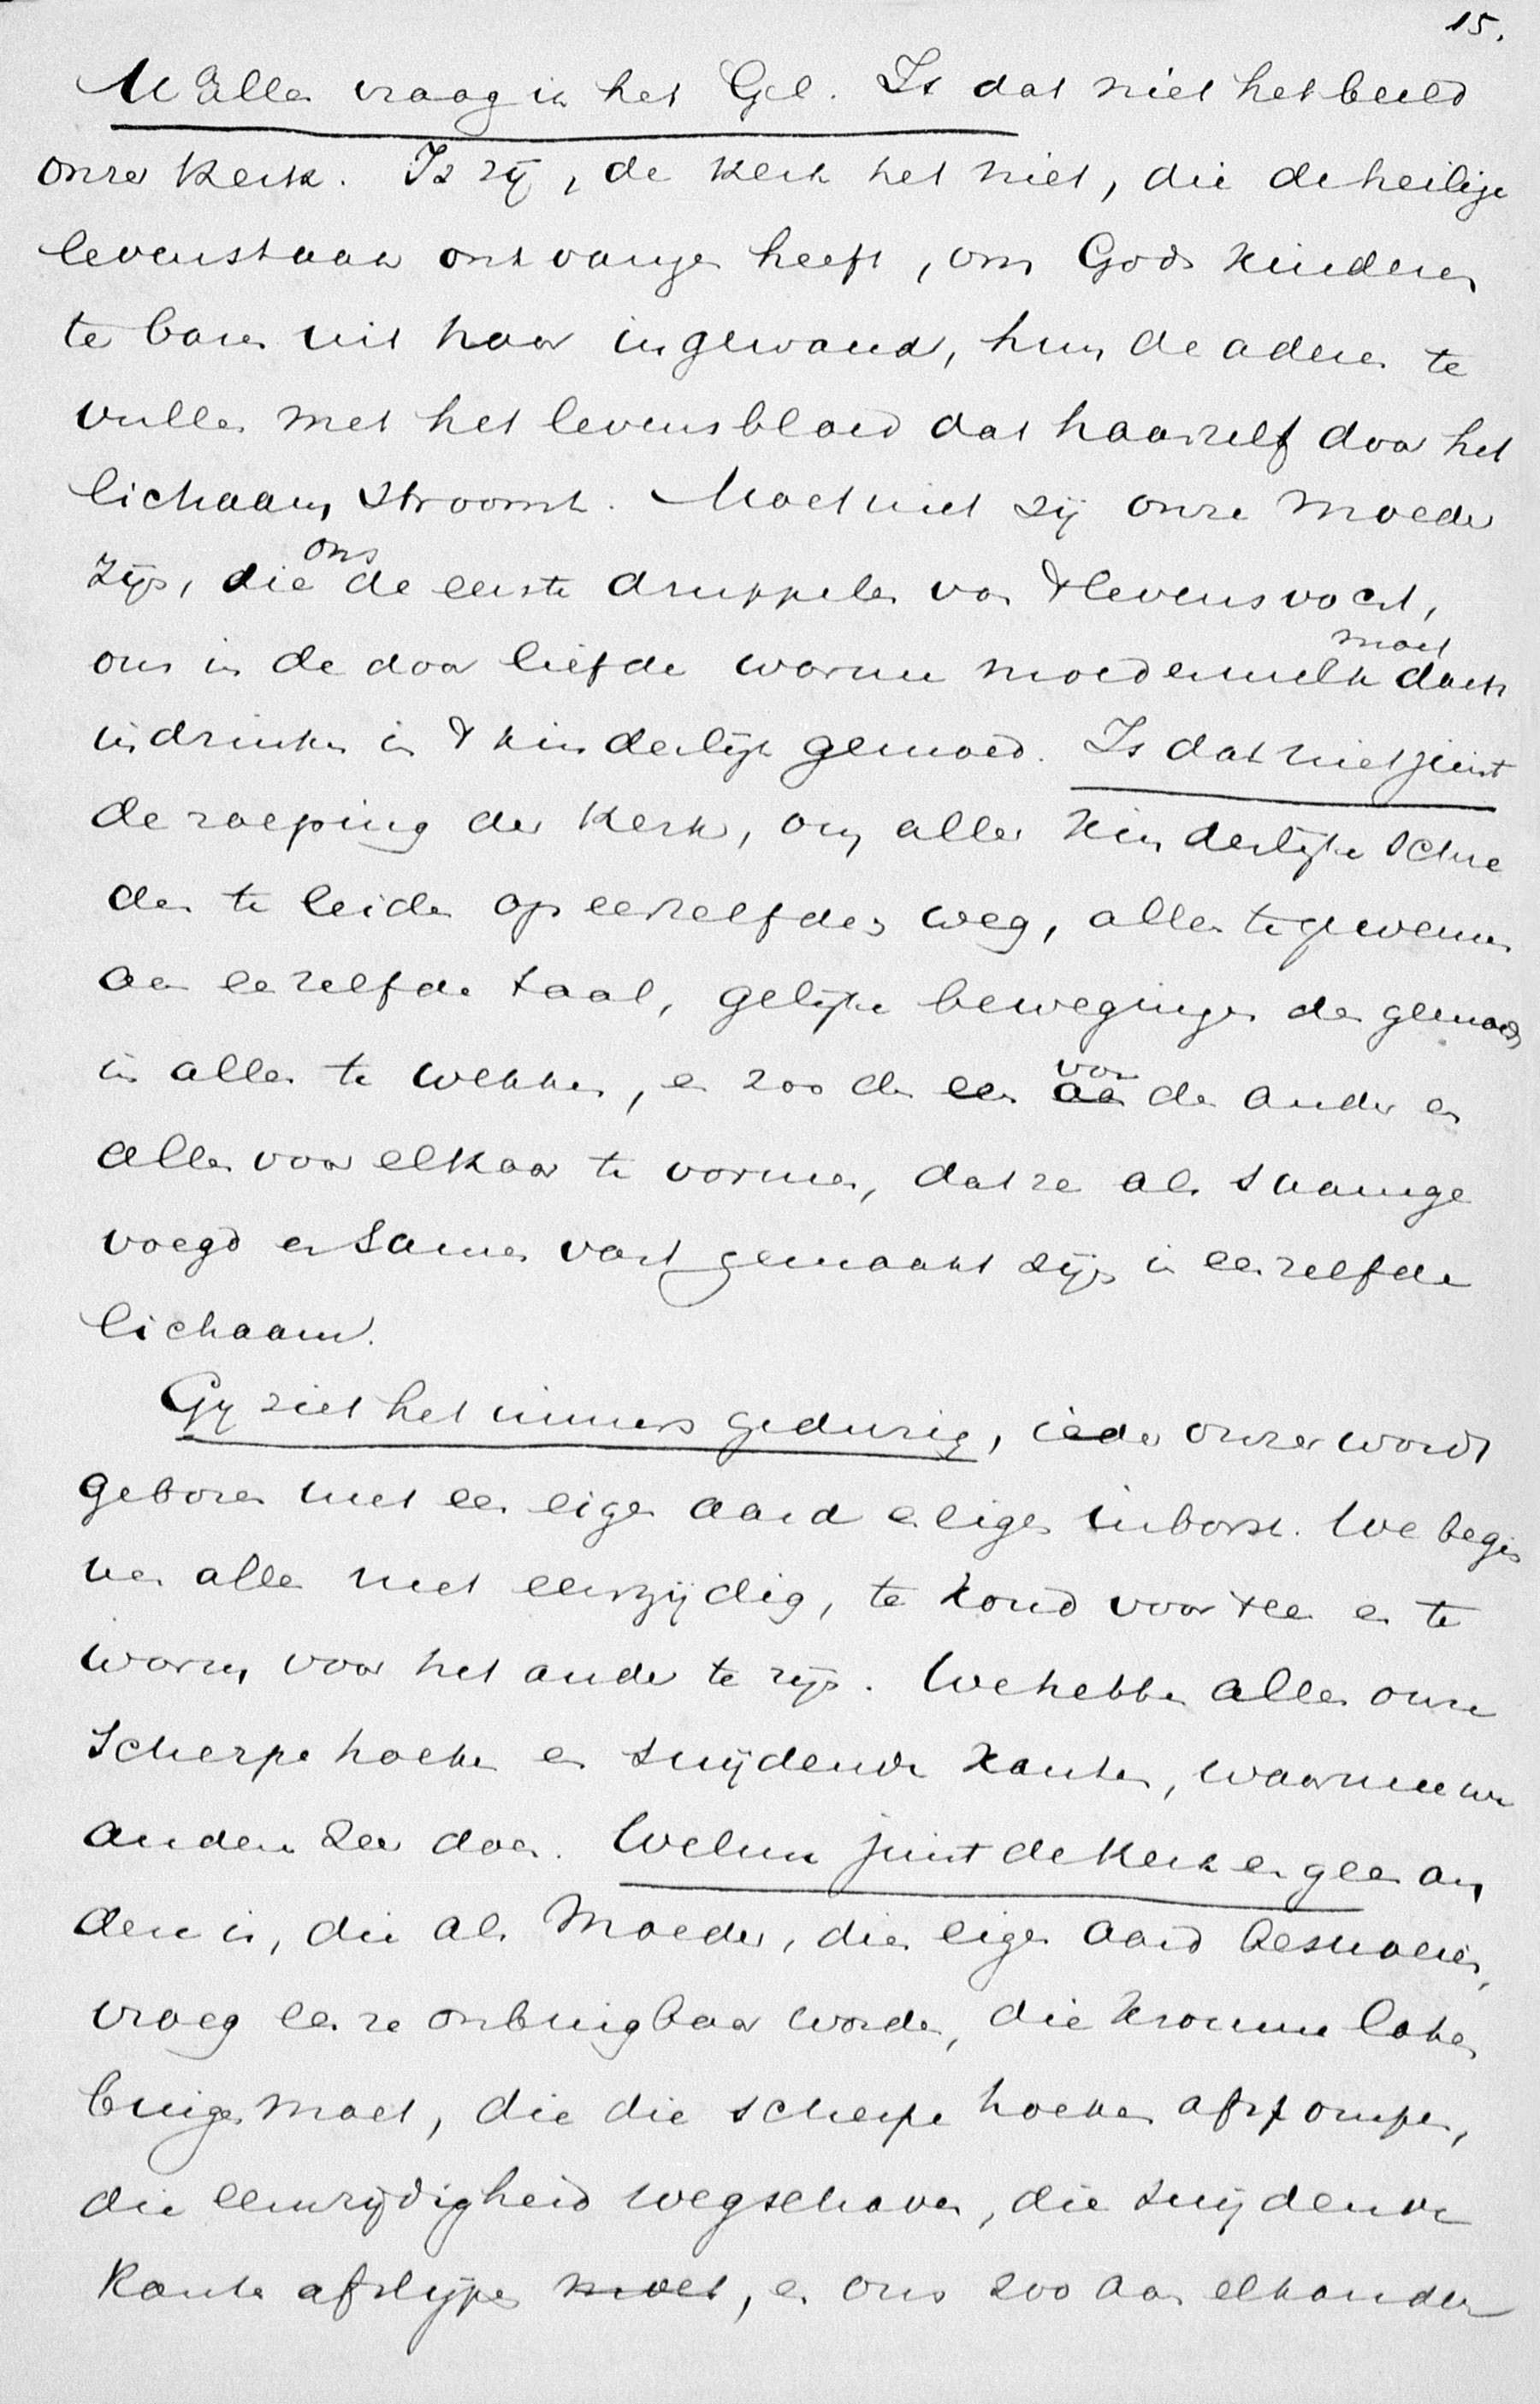 15.
U Allen vraag ik het Gel. Is dat niet het beeld
onzer Kerk. Is zij, de Kerk het niet, die de heilige
levenstaak ontvangen heeft, om Gods Kinderen
te baren uit haar ingewand, hun de aderen te
vullen met het levensbloed dat haarzelf door het
lichaam stroomt. Moet niet zij onze Moeder
zijn, die ons de eerste druppelen van 't levensvocht,
ons in de door liefde warme moedermelk moet doen
indrinken in 't kinderlijk gemoed. Is dat niet juist
de roeping der Kerk, om aller Kinderlijke schre
den te leiden op eenzelfden weg, allen te gewennen
aan eenzelfde taal, gelijke bewegingen des gemoeds
in allen te wekken, en zoo den een voor den ander en
allen voor elkaar te vormen, dat ze als saamge
voegd en samen vast gemaakt zijn in eenzelfde
lichaam.
Gij ziet het immers gedurig, ieder onzer wordt
geboren met een eigen aard en eigen inborst. We begin
nen allen met eenzijdig, te koud voor 't een en te
warm voor het ander te zijn. We hebben allen onze
Scherpe hoeken en snijdende Kanten, waarmee we
anderen zeer doen. Welnu juist de Kerk en geen an
dere is, die als Moeder, dien eigen aard besnoeien,
vroeg eer ze onbuigbaar worden, die kromme loten
buigen moet, die die scherpe hoeken afstompen,
die eenzijdigheid wegschaven, die snijdende
Kanten afslijpen moet, en ons zoo aan elkander